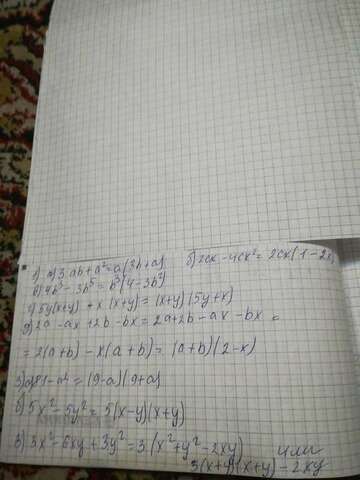 1) а) 3ab + a² = a(3b + a) б) 2cx - 4cx² = 2cx(1 - 2x)
в) 4b³ - 3b⁵ = b³(4 - 3b²)
г) 5y(x+y) + x(x+y) = (x+y)(5y+x)
д) 2a - ax + 2b - bx = 2a + 2b - ax - bx =
= 2(a+b) - x(a+b) = (a+b)(2-x)
3) а) 81 - a² = (9-a)(9+a)
б) 5x² - 5y² = 5(x-y)(x+y)
в) 3x² - 6xy + 3y² = 3(x² + y² - 2xy) или
3(x+y)(x+y) - 2xy